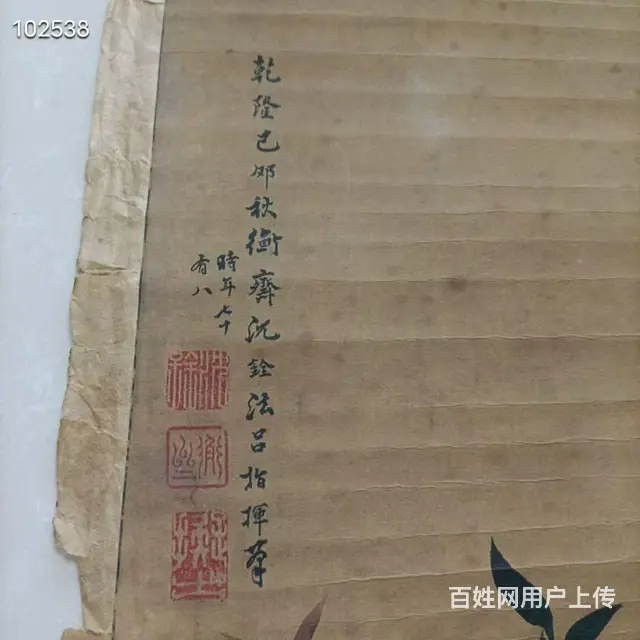 102538
乾隆己夘秋衡齋沈銓法呂指揮筆
時年七十
有八
百姓网用户上传